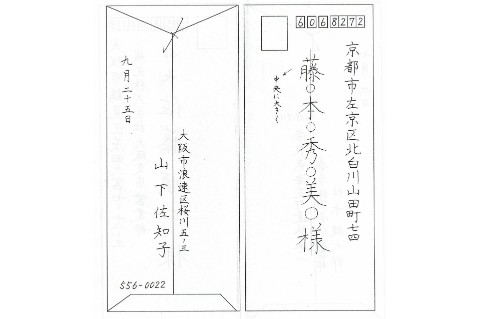 九月二十五日
大阪市浪速区桜川五ノ三
山下佐知子
556-0022
6068272
京都市左京区北白川山田町七四
中央に大きく
藤○本○秀○美○様